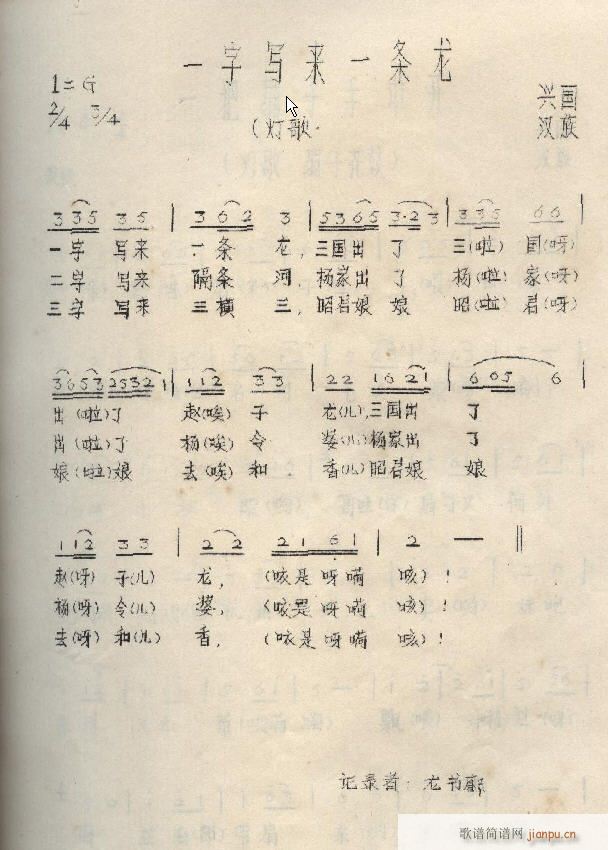 一字写来一条龙
1=G
2/4 3/4
(灯歌)
兴国
汉族
3 3 5 3 5 | 3 6 2 3 | 5 3 6 5 3·2 3 | 3 3 5 6 6
一字 写来 一条 龙, 三国出 了 三(啦) 国(呀)
二字 写来 隔条 河 杨家出 了 杨(啦) 家(呀)
三字 写来 三横 三, 昭君娘 娘 昭(啦) 君(呀)
3 6 5 3 2 5 3 2 1 | 1 1 2 3 3 | 2 2 1 6 2 1 | 6 6 5 6 |
出(啦)了 赵(唉) 子 龙(儿), 三国出 了
出(啦)了 杨(唉) 令 婆(儿) 杨家出 了
娘(啦)娘 去(唉) 和 香(儿) 昭君娘 娘
1 1 2 3 3 | 2 2 2 1 6 1 | 2 — ‖
赵(呀) 子(儿) 龙, (咳是呀嗬 咳)!
杨(呀) 令(儿) 婆, (咳是呀嗬 咳)!
去(呀) 和(儿) 香, (咳是呀嗬 咳)!
记录者: 龙书
歌谱简谱网 jianpu.cn